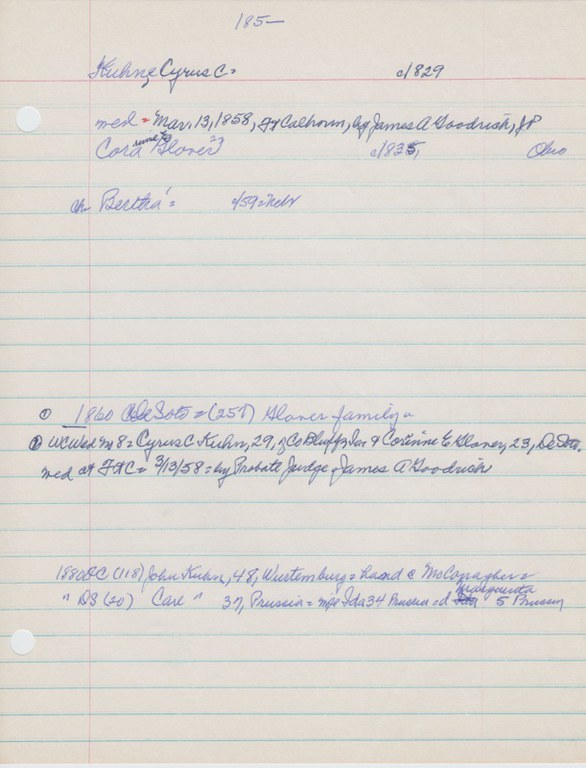 185-
Kuhn, Cyrus C = c/1829
med = Mar, 13, 1858, Ft Calhoun, by James A Goodrich, JP
Cora Glover c/1835, Ohio
ch Bertha = c/59 = Nebr
① 1860 DeSoto = (257) Glover family =
② WCWed Yn 8 = Cyrus C Kuhn, 29, of Co Bluffs, Ia & Corinine E Glover, 23, DeSoto.
med at FtC = 3/13/58 = by Probate Judge, James A Goodrich
1880 DC (118) John Kuhn, 48, Wurtemburg = hand @ McConagher =
Marguerita
" DS (20) Carl " 37, Prussia = Ida 34 Prussia = d 5 Prussia